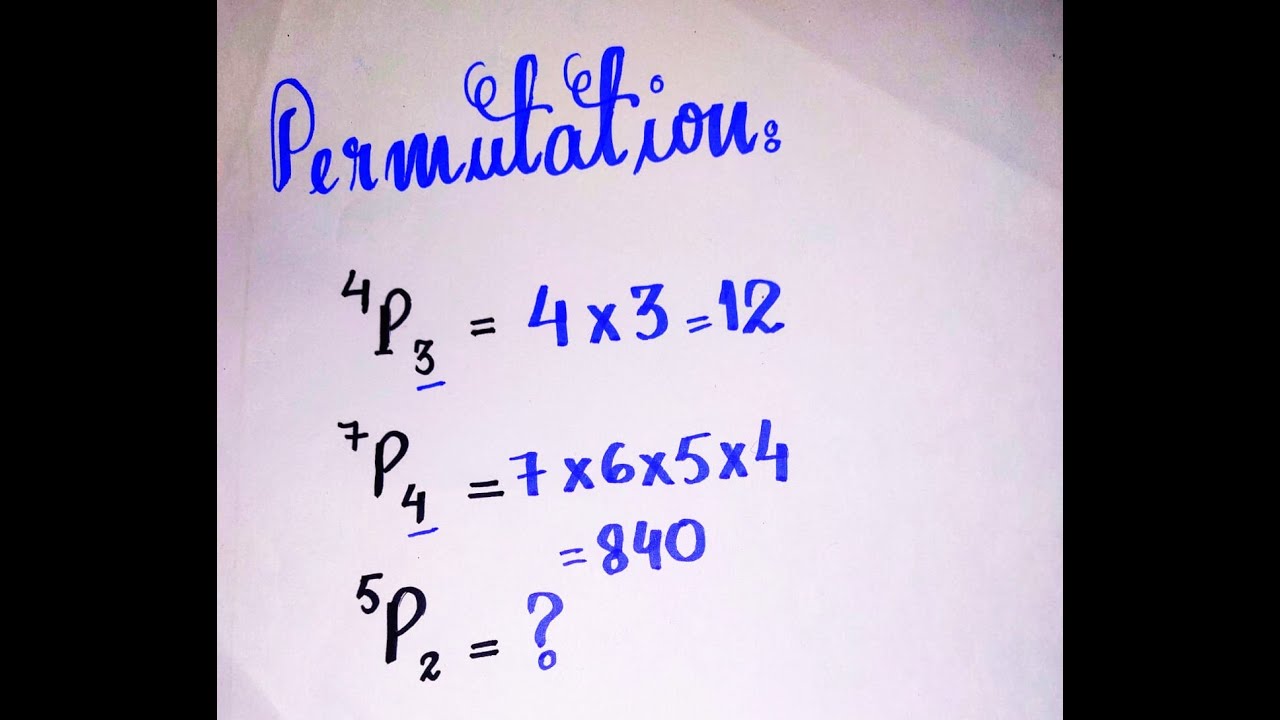 Permutation:
⁴P₃ = 4 x 3 = 12
⁷P₄ = 7 x 6 x 5 x 4
= 840
⁵P₂ = ?